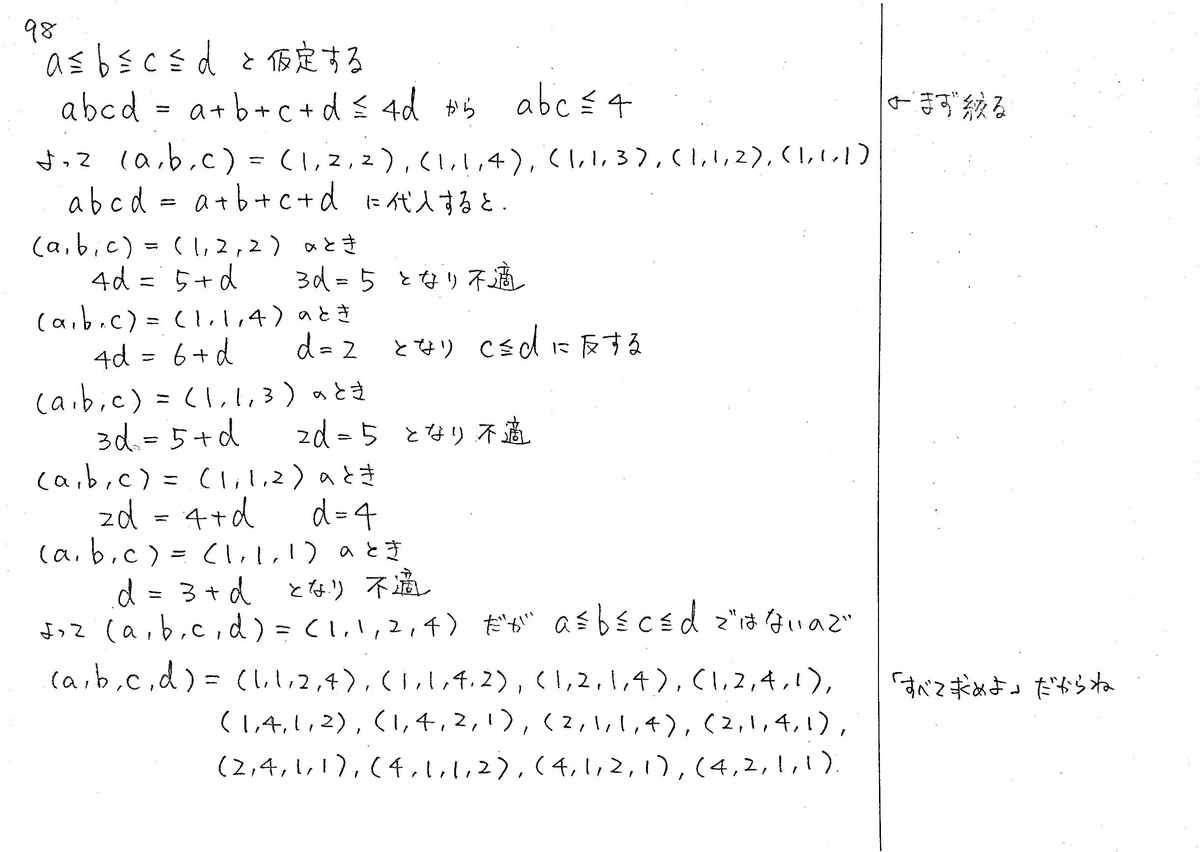 98
a≦b≦c≦d と仮定する
abcd = a+b+c+d ≦ 4d から abc≦4
←まず絞る
よって (a,b,c) = (1,2,2), (1,1,4), (1,1,3), (1,1,2), (1,1,1)
abcd = a+b+c+d に代入すると.
(a,b,c) = (1,2,2) のとき
4d = 5+d 3d=5 となり不適
(a,b,c) = (1,1,4) のとき
4d = 6+d d=2 となり c≦dに反する
(a,b,c) = (1,1,3) のとき
3d = 5+d 2d=5 となり不適
(a,b,c) = (1,1,2) のとき
2d = 4+d d=4
(a,b,c) = (1,1,1) のとき
d = 3+d となり 不適
よって (a,b,c,d) = (1,1,2,4) だが a≦b≦c≦d ではないので
(a,b,c,d) = (1,1,2,4), (1,1,4,2), (1,2,1,4), (1,2,4,1),
「すべて求めよ」だからね
(1,4,1,2), (1,4,2,1), (2,1,1,4), (2,1,4,1),
(2,4,1,1), (4,1,1,2), (4,1,2,1), (4,2,1,1).